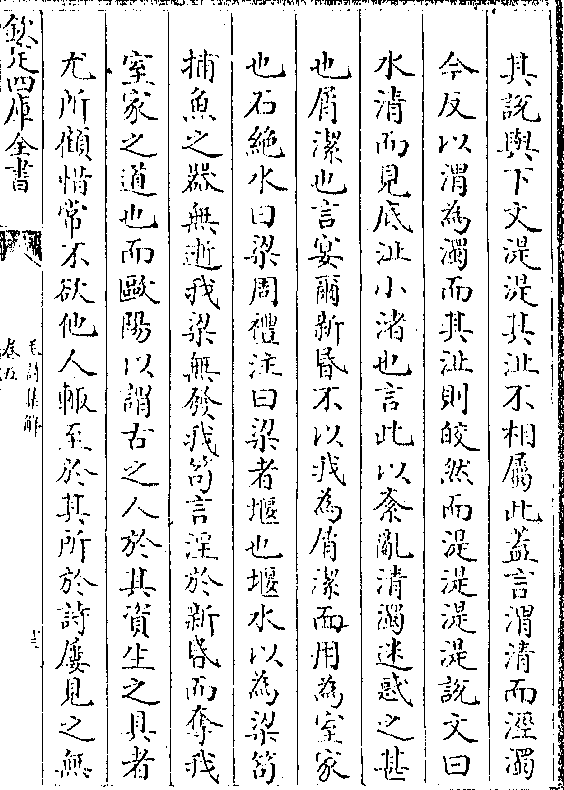 其說與下文湜湜其沚不相屬此蓋言渭清而涇濁
今反以渭為濁而其沚則皎然而湜湜湜湜說文曰
水清而見底沚小渚也言此以紊亂清濁迷惑之甚
也屑潔也言宴爾新昏不以我為屑潔而用為室家
也石絶水曰梁周禮注曰梁者堰也堰水以為梁笱
捕魚之器無逝我梁無發我笱言淫於新昏而奪我
室家之道也而歐陽以謂古之人於其資生之具者
尤所顧惜常不欲他人輒至於其所於詩屢見之無
欽定四庫全書
毛詩集解
卷五